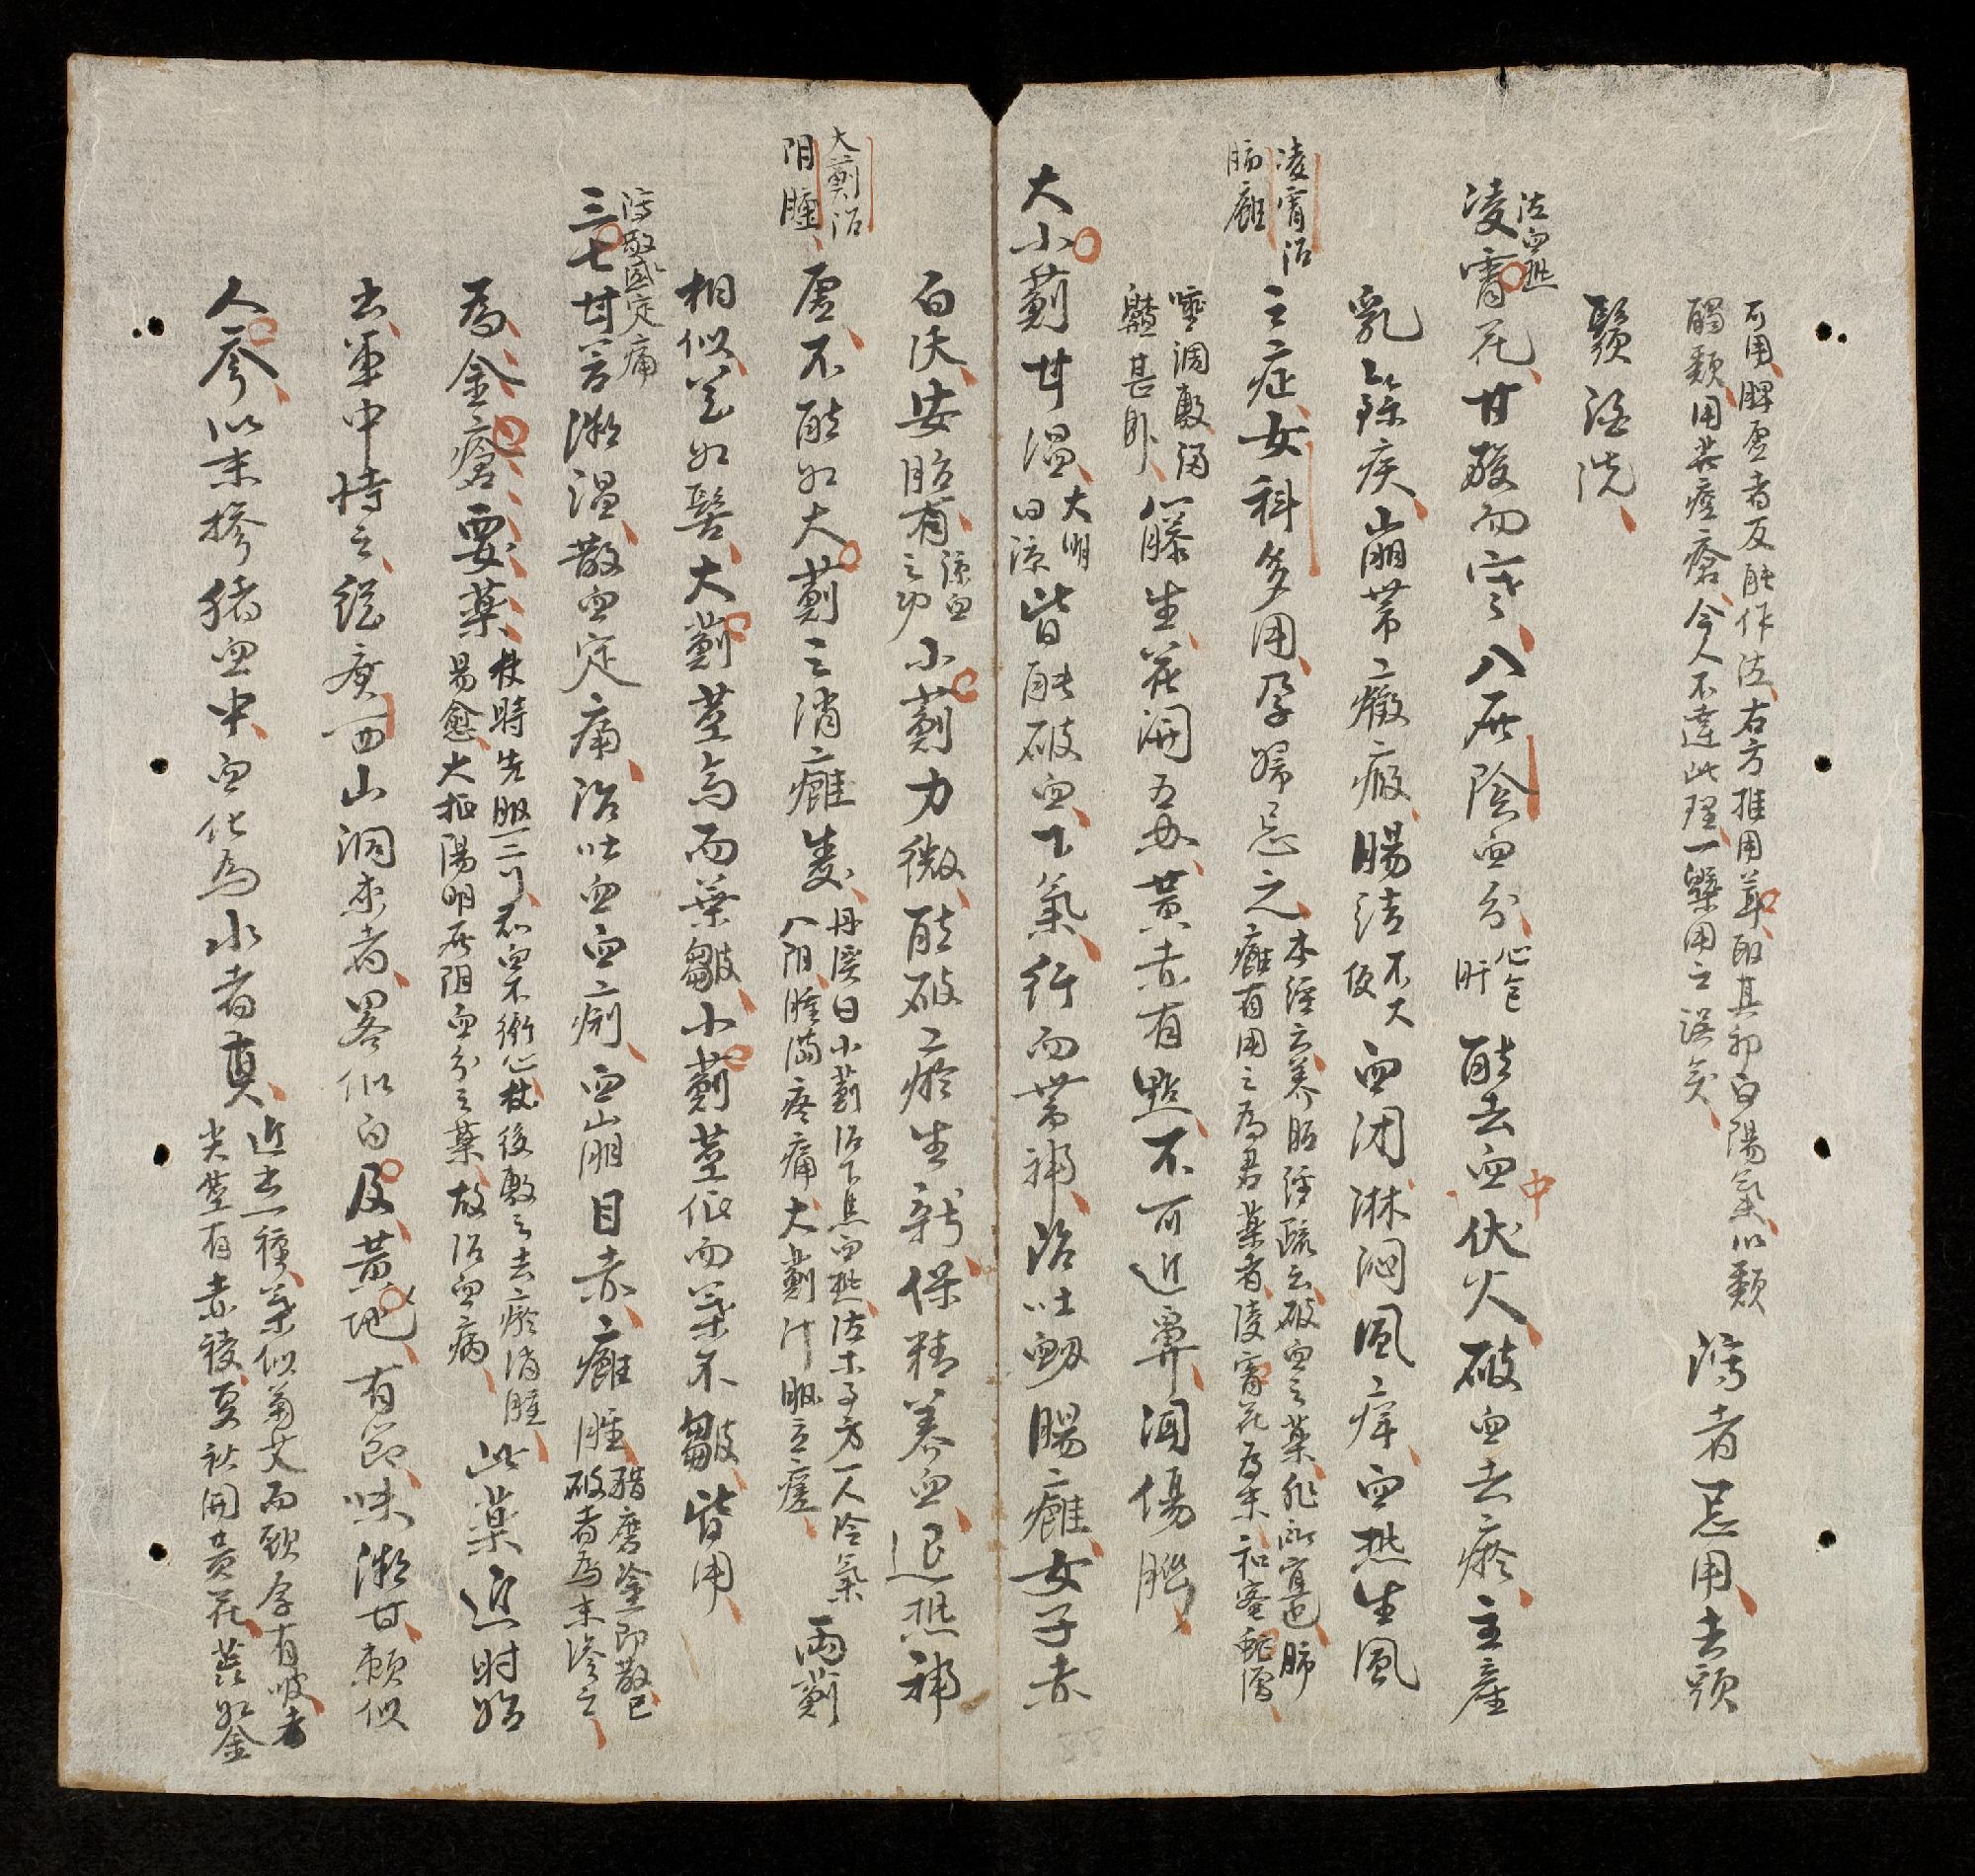 可用、脾虛者反能作法、右方推用茸、取其卯、白陽氣以類
觸類、用其痊瘡、今人不達此理、一槩用之誤矣、
瀉者忌用、去頭
鬚、酒洗、
泣血熱
凌霄花、甘酸而寒、入厥陰血分、心包
肝
能去血中伏火、破血去瘀、主產
乳餘疾、崩帶癥瘕、腸結不大
便
血閉淋悶風痒、血熱生風
之症、女科多用、孕婦忌之、本經云養胎經疏云破血之藥、非所宜也、肺
癰有用之為君藥者、凌霄花為末、和蜜陀僧、
凌霄治
肺癰
唾調敷酒
齄甚卧、
藤生、花開五瓣、黃赤有點、不可近鼻聞傷腦、
大小薊、甘溫、大明
曰涼
皆能破血、下氣、行而帶補、治吐衄腸癰、女子赤
白沃、安胎、有凉血
之功
小薊力微、能破瘀生新、保精養血、退熱補
大薊治
阴腫
虛、不能如大薊之消癰毒、丹溪曰小薊治下焦血熱、法木子方一人冷氣
入阴、腫滿疼痛、大薊汁服立瘥、
兩薊
相似、花如髻、大薊莖高而葉皺、小薊莖低而葉不皺、皆用、
瀉散瘀定痛
三七、甘苦微溫、散血定痛、治吐血血痢、血崩目赤癰腫、醋磨塗即散、已
破者為末摻之、
為金瘡要藥、杖時先服一二钱、則血不衝心、杖後敷之去瘀消腫、
易愈、大抵陽明厥阴血分之藥、故治血病、
此藥近时始
出、軍中恃之、從廣西山洞來者、畧似白及、黃地、有節、味微甘、頗似
人參、以末摻豬血中、血化為水者真、近出一種、葉似菊艾而勁、厚有岐尖、
尖莖有赤稜、夏秋開黃花、蕊如金